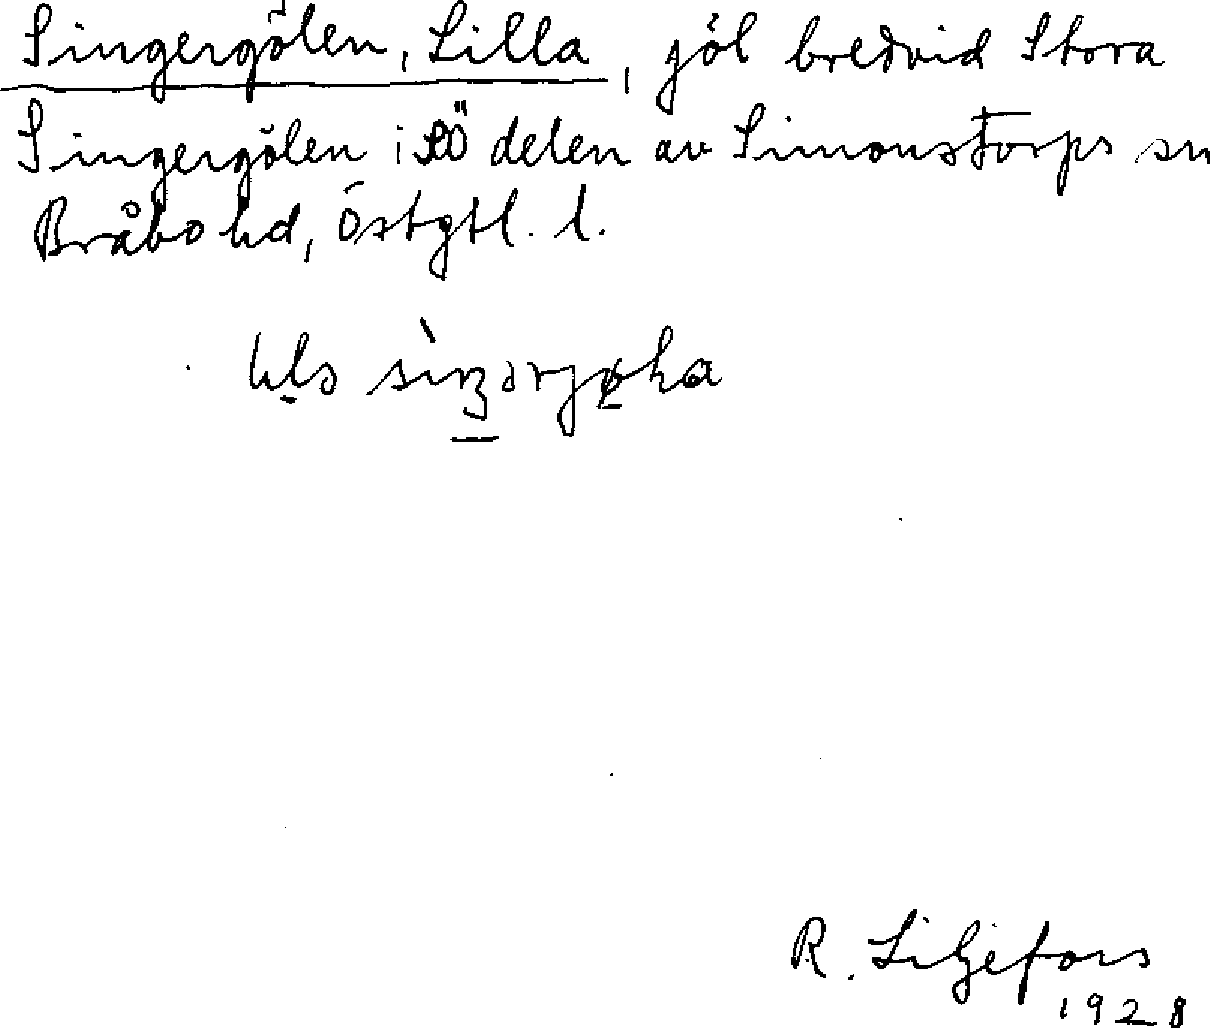 Singergölen, Lilla, göl bredvid Stora
Singergölen i SÖ delen av Simonstorps sn
Bråbo hd, Östgtl. l.
R. Liljefors
1928